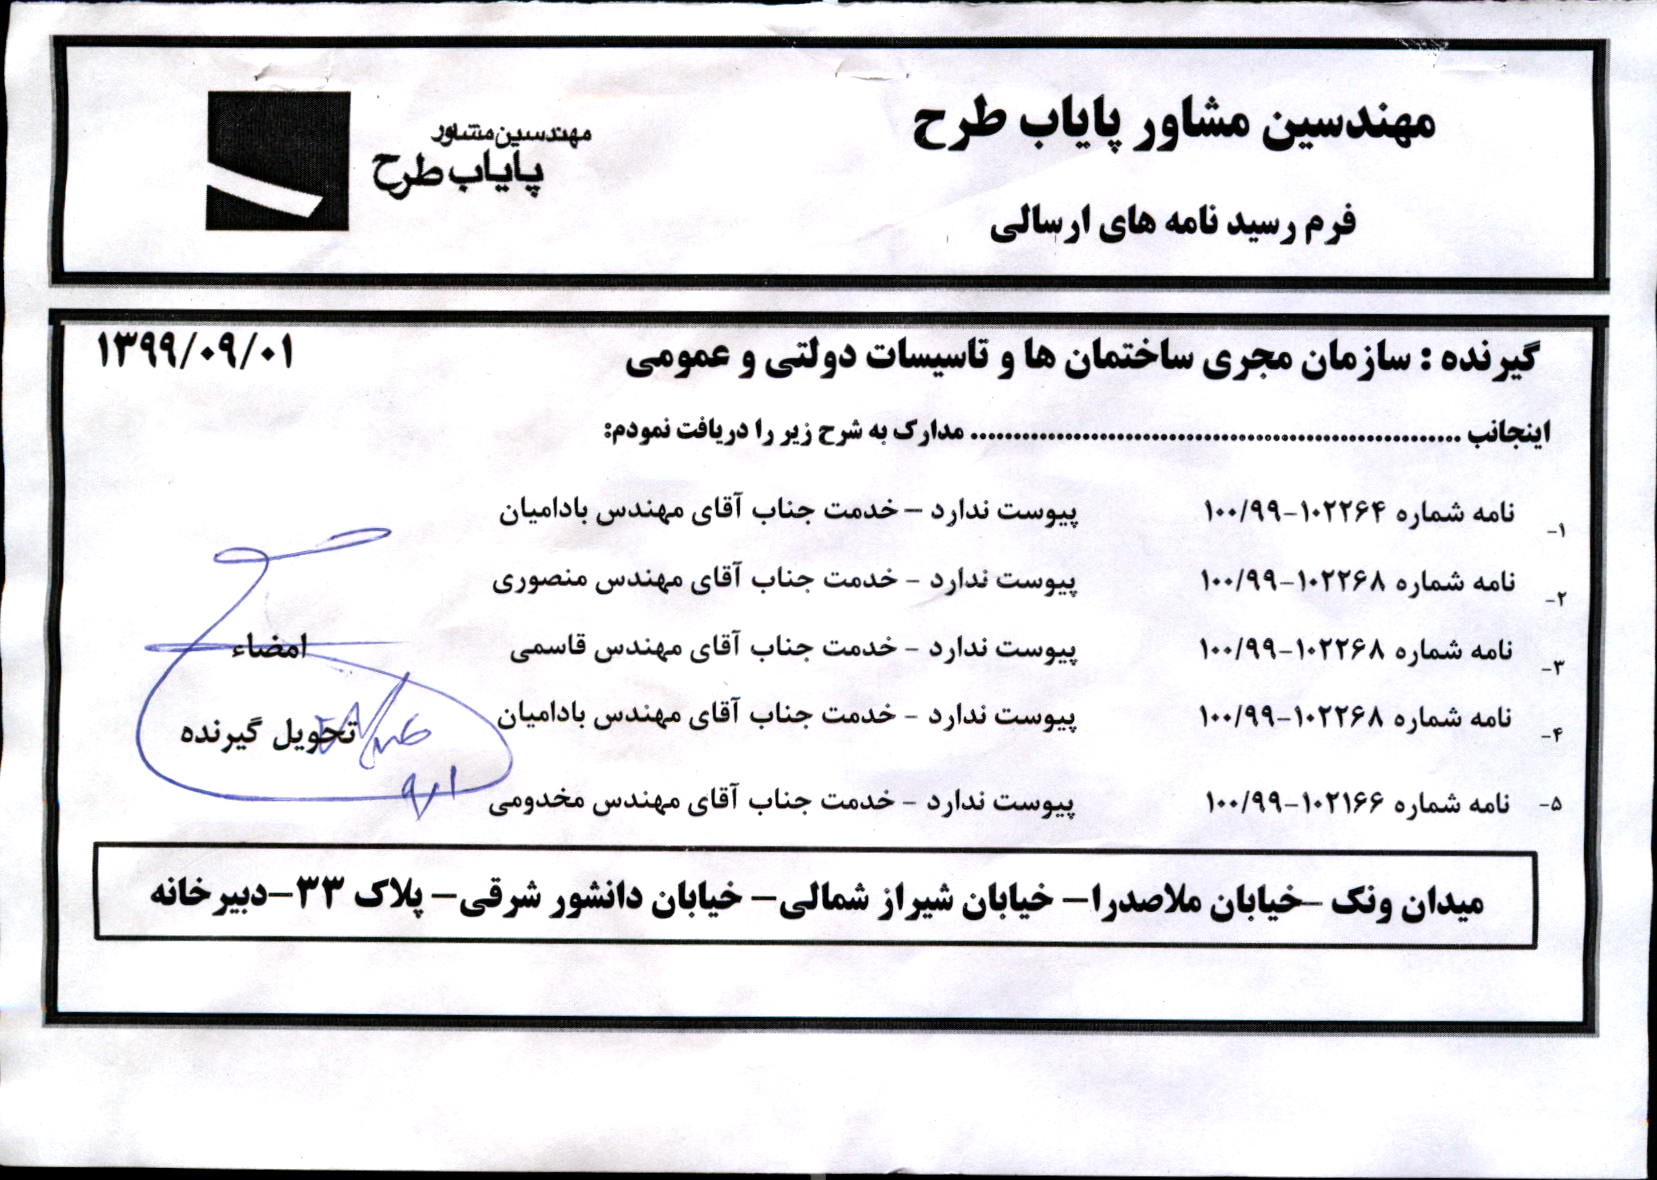 مهندسین مشاور پایاب طرح
مهندسین مشاور
پایاب طرح
فرم رسید نامه های ارسالی
گیرنده : سازمان مجری ساختمان ها و تاسیسات دولتی و عمومی ۱۳۹۹/۰۹/۰۱
اینجانب ........................................................ مدارک به شرح زیر را دریافت نمودم:
۱- نامه شماره ۱۰۲۲۶۴-۱۰۰/۹۹ پیوست ندارد – خدمت جناب آقای مهندس بادامیان
۲- نامه شماره ۱۰۲۲۶۸-۱۰۰/۹۹ پیوست ندارد - خدمت جناب آقای مهندس منصوری
۳- نامه شماره ۱۰۲۲۶۸-۱۰۰/۹۹ پیوست ندارد - خدمت جناب آقای مهندس قاسمی
امضاء
۴- نامه شماره ۱۰۲۲۶۸-۱۰۰/۹۹ پیوست ندارد - خدمت جناب آقای مهندس بادامیان
تحویل گیرنده
۵- نامه شماره ۱۰۲۱۶۶-۱۰۰/۹۹ پیوست ندارد - خدمت جناب آقای مهندس مخدومی
میدان ونک –خیابان ملاصدرا– خیابان شیراز شمالی– خیابان دانشور شرقی– پلاک ۳۳–دبیرخانه